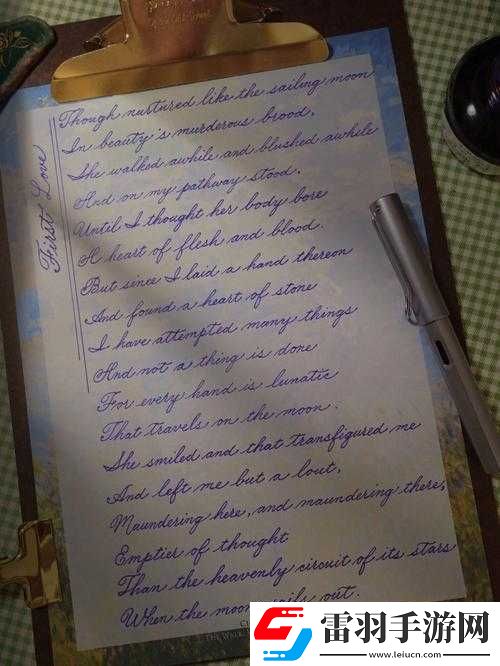 First Love
Though nurtured like the sailing moon
In beauty's murderous brood,
She walked awhile and blushed awhile
And on my pathway stood,
Until I thought her body bore
A heart of flesh and blood.
But since I laid a hand thereon
And found a heart of stone
I have attempted many things
And not a thing is done
For every hand is lunatic
That travels on the moon.
She smiled and that transfigured me
And left me but a lout,
Maundering here, and maundering there,
Emptier of thought
Than the heavenly circuit of its stars
When the moon sails out.
THE WALK,
雷羽手游网
www.leiucn.com